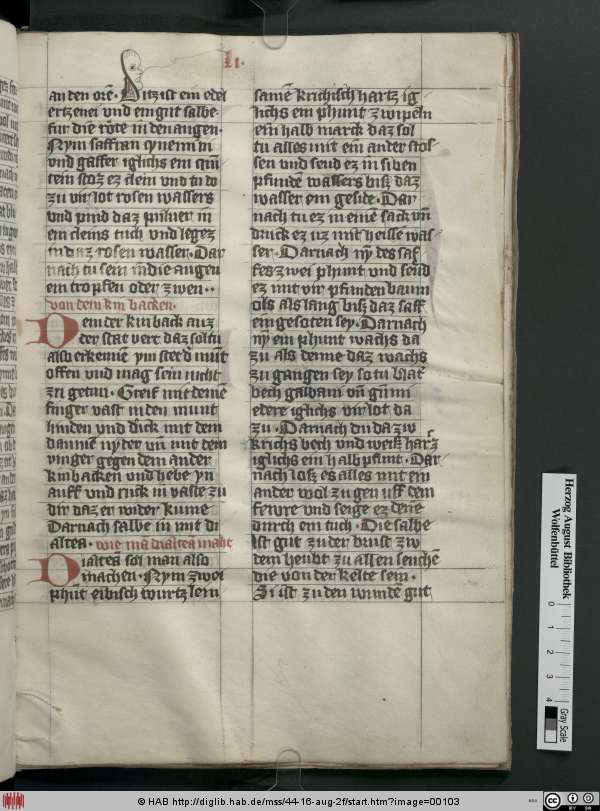 li.
an den orē. Ditz ist ein edel
ertzenei vnd ein gut salbe
fur die röte in den augen.
Nym saffran
vnd gaffer iglichs ein
tein stoz ez clein vnd tu do
zu vir lot rosen wassers
vnd pind daz puluer in
ein cleins tuch vnd legez
in daz rosen wasser. Dar
nach tu sein in die augen
ein tropfen oder zwen..
von dem kinbacken.
Dem der kinback auz
der stat vert daz soltu
also erkennē ym stet d᾽ mūt
offen vnd mag sein nicht
zu getun. Greif mit deinē
finger vast in den munt
hinden vnd druck mit dem
daumē nyder vn̄ mit dem
vinger gegen dem ander
kinbacken vnd hebe yn
auff vnd ruck in vaste zu
dir daz er wider kume
Darnach salbe in mit di
altea. wie mā dialtea macht
Dialtea sol man also
machen. Nym zwei
phūt eibisch wurtz lein
samē krichisch hartz ig
lichs ein phunt zwipeln
ein halb marck daz sol
tu alles mit ein ander stos
sen vnd seud ez in siben
pfundē wassers bisz daz
wasser ein geside. Dar
nach tu ez in einē sack vn̄
druck ez uz mit heisse was
ser. Darnach nȳ des saf
fes zwei phunt vnd seud
ez mit vir pfunden baum
ols als lang bisz daz saff
eingesoten sey. Darnach
nȳ ein phunt wachs da
zu als denne daz wachs
zu gangen sey so tu
bech galbani vn̄ gūmi
edere iglichs vir lot da
zu. Darnach
krichs bech vnd weisz hartz
iglichs ein halb pfunt. Dar
nach losz es alles mit ein
ander wol zu gen uff dem
fewre vnd seige ez dēne
durch ein tuch. Die salbe
ist gut zu der brust zw
dem heubt zu allen seuchē
die von der kelte sein.
Si ist zu den wundē gut
Herzog August Bibliothek
Wolfenbüttel
0 1 2 3 4
Gray Scale
© HAB http://diglib.hab.de/mss/44-16-aug-2f/start.htm?image=00103
CC BY SA